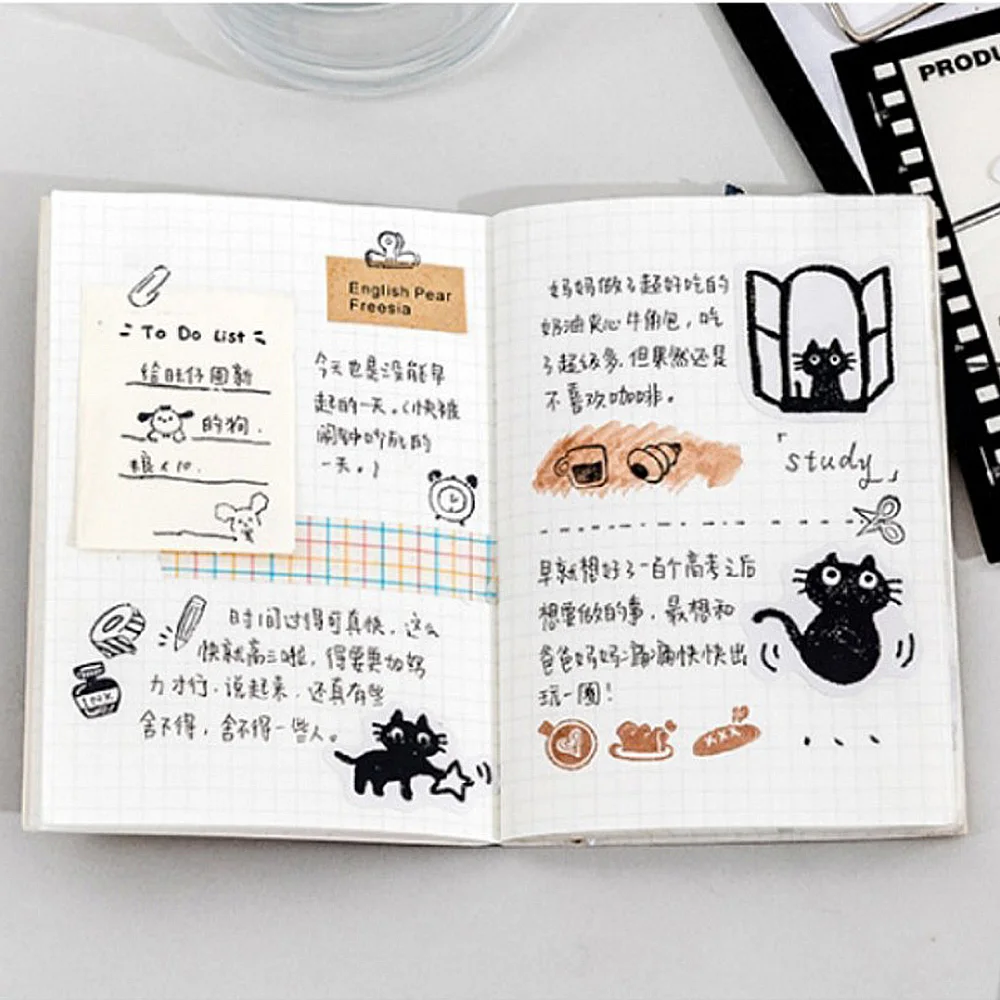 To Do List
给旺仔团新
的狗.
粮 x 10.
English Pear
Freesia
今天也是没能早
起的一天。(快被
闹钟吵死的
一天。)
时间过得可真快，这么
快就高三啦，得要更加努
力才行.说起来，还真有些
舍不得，舍不得一些人。
INK
妈妈做了超好吃的
奶油夹心牛角包，吃
了超级多.但果然还是
不喜欢咖啡。
「study」
早就想好了一百个高考之后
想要做的事，最想和
爸爸妈妈痛痛快快出
玩一圈！
XXX
PRODU